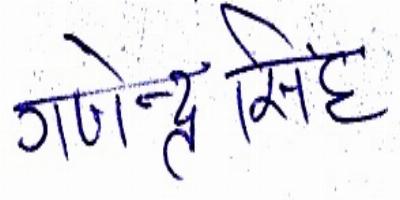 गजेन्द्र सिंह